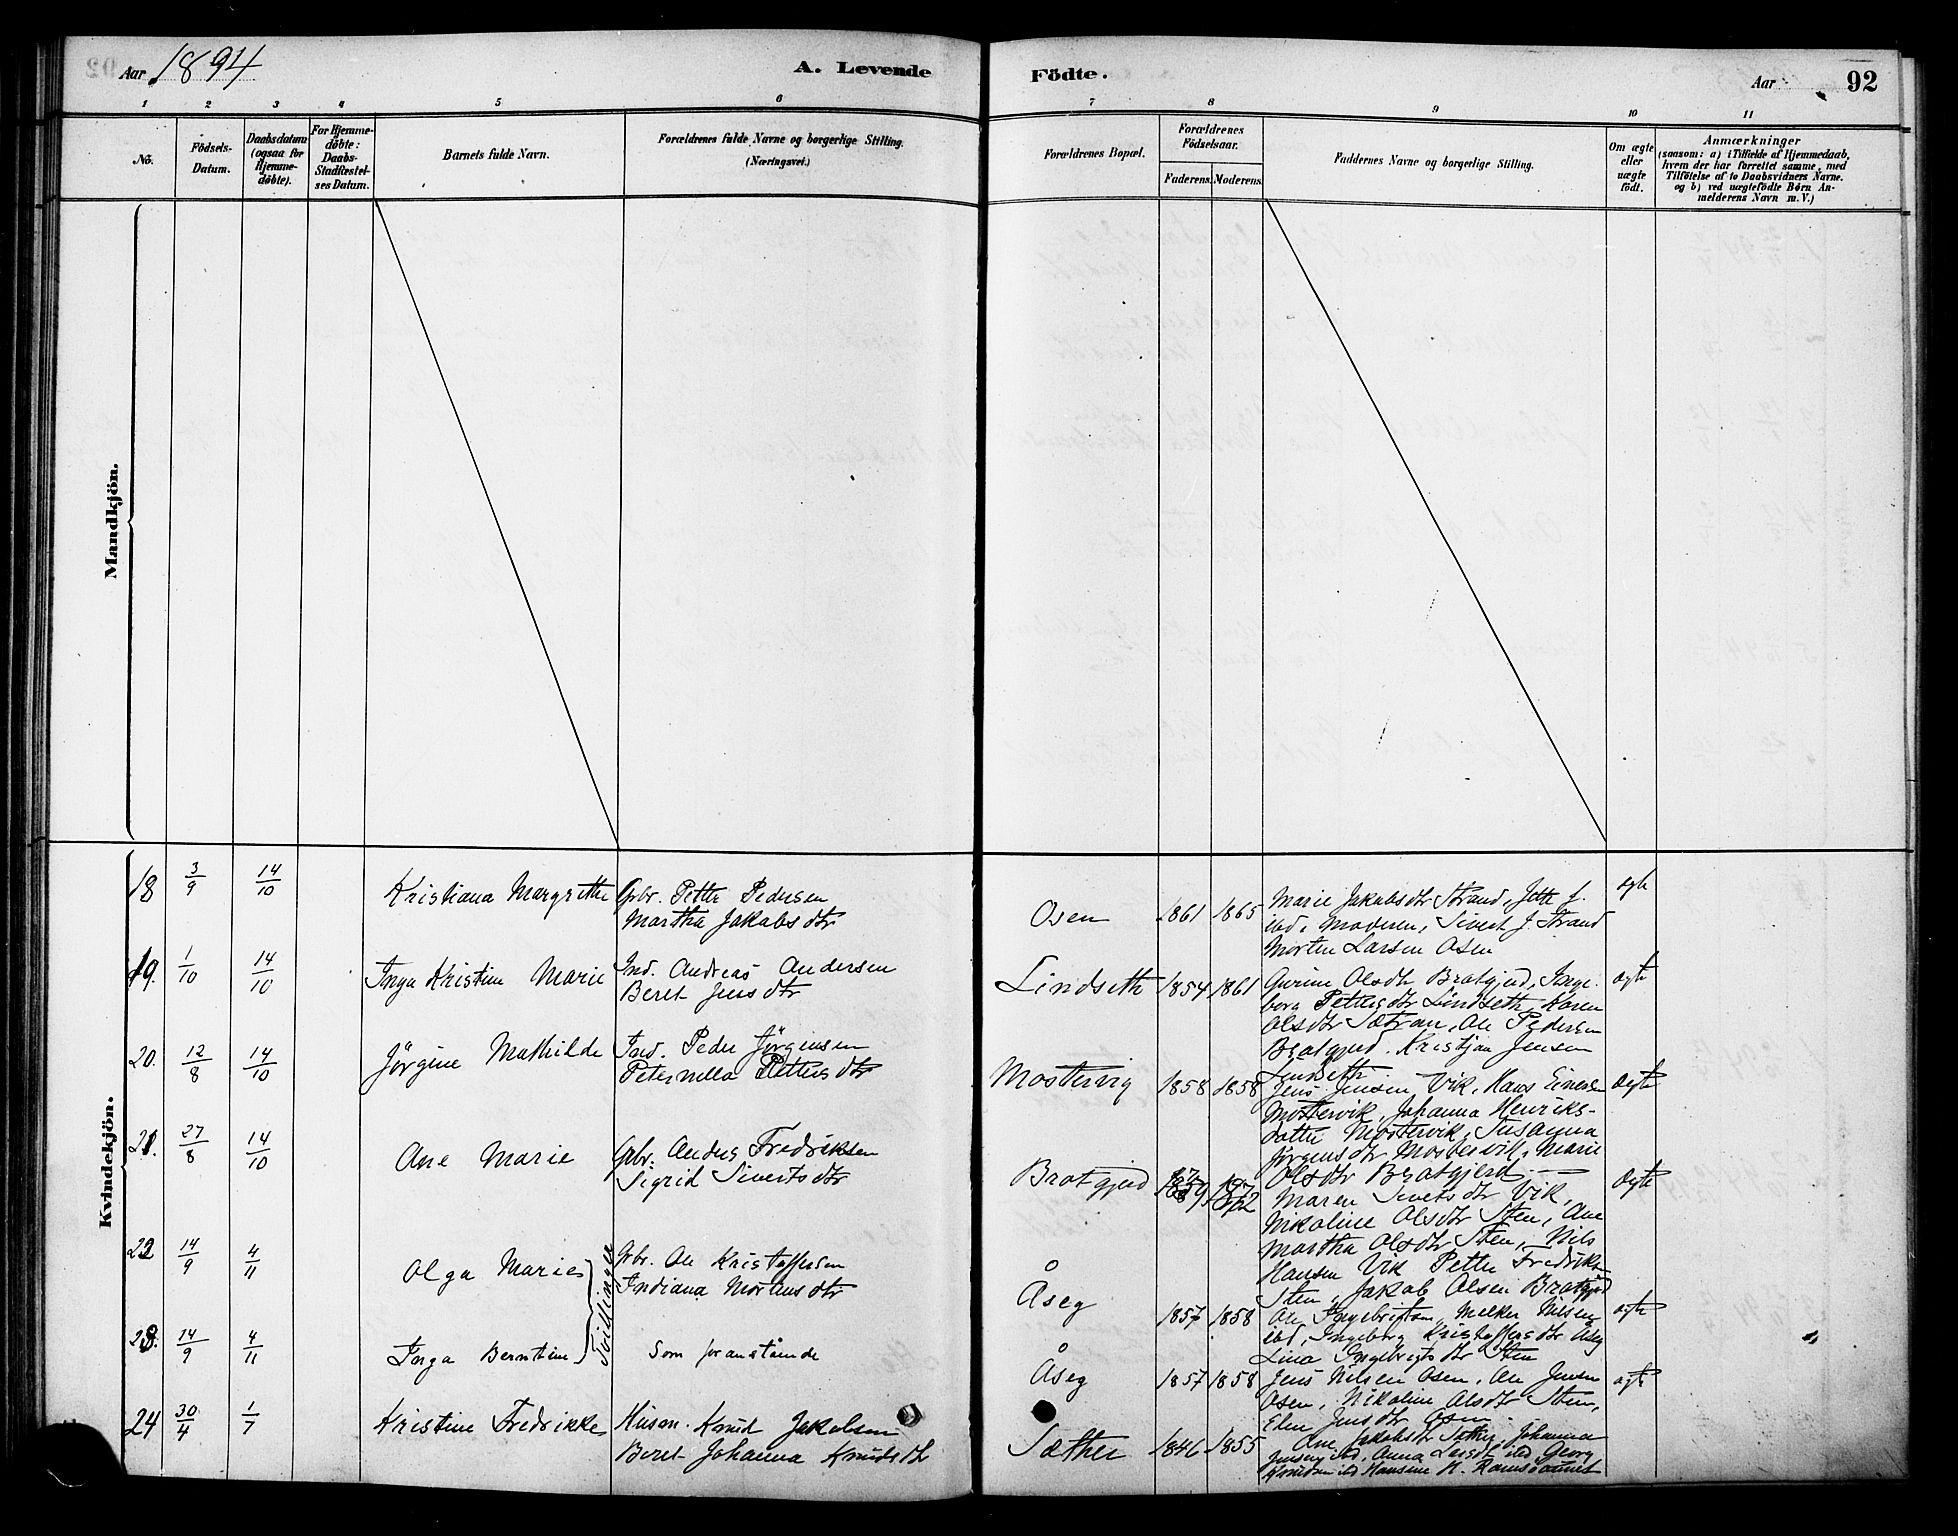 Aar 1894
A. Levende
Födte.
Aar
92
1 2 3 4 5 6 7 8 9 10 11
Nö.
Födsels-
Datum.
Daabsdatum
(ogsaa for
Hjemme-
döbte).
For Hjemme-
döbte:
Daabs-
Stadfæstel-
ses Datum.
Barnets fulde Navn.
Forældrenes fulde Navne og borgerlige Stilling.
(Næringsvei.)
Forældrenes Bopæl.
Forældrenes
Födselsaar.
Faderens. Moderens.
Faddernes Navne og borgerlige Stilling.
Om ægte
eller
uægte
födt.
Anmærkninger
(saasom: a) i Tilfælde af Hjemmedaab,
hvem der har forrettet samme, med
Tilföielse af to Daabsvidners Navne.
og b) ved uægtefödte Børn An-
melderens Navn m. V.)
Mandkjön.
Kvindekjön.
18 3/9 14/10 Kristiana Margrethe Gbr. Petter Pedersen
Martha Jakobsdtr
Osen 1861 1865 ægte
Marie Jakobsdtr Strand, Jette J.
ibd, Moderen, Sivert J. Strand
Morten Larsen Osen
19. 1/10 14/10 Inga Kristine Marie Ind. Andreas Andersen
Beret Jensdtr
Lindseth 1854 1861 ægte
Gurine Olsdtr Bratgjerd, Inge-
borg Pettersdtr Lindseth, Karen
Olsdtr Sætran, Ole Pedersen
Bratgjerd. Kristjan Jensen
Lindseth
20. 12/8 14/10 Jörgine Mathilde Ind. Peder Jörgensen
Peternella Pettersdtr
Mostervig 1858 1858 Ægte
Jens Jensen Vik, Hans Einersen
Mostervik, Johanna Henriks-
datter Mostervik, Susanna
Jörgensdtr Mostervik, Marie
Olsdtr Bratgjerd
21. 27/8 14/10 Ane Marie Gbr. Anders Fredriksen
Sigrid Sivertsdtr
Bratgjerd Ægte
Maren Sivertsdtr Vik,
Nikoline Olsdtr Sten, Ane
Martha Olsdtr Sten, Nils
Hansen Vik Petter Fredriksen
Sten, Jakob Olsen Bratgjerd
22 14/9 4/11 Olga Marie Tvillinger Gbr. Ole Kristoffersen
Indiana Mortensdtr
Åseg 1857 1858 ægte
Ole Ingebrigtsen, Melker Nilsen
ibd, Ingeborg Kristoffersdtr Åseg
Lina Ingebrigtsdtr Sten
23. 14/9 4/11 Inga Berntine Som foranstående
Åseg 1857 1858 ægte
Jens Nilsen Osen, Ole Jensen
Osen, Nikoline Olsdtr Sten,
Elen Jensdtr Osen
24 30/4 1/7 Kristine Fredrikke Husm. Knud Jakobsen
Beret Johanna Knudsdtr
Sæther 1846 1855
Ane Jakobsdtr Sæther, Johanna
Jensen ibd, Anna Larsdtr ibd, Georg
Knudsen ibd Hansine K. Ramsvatnet